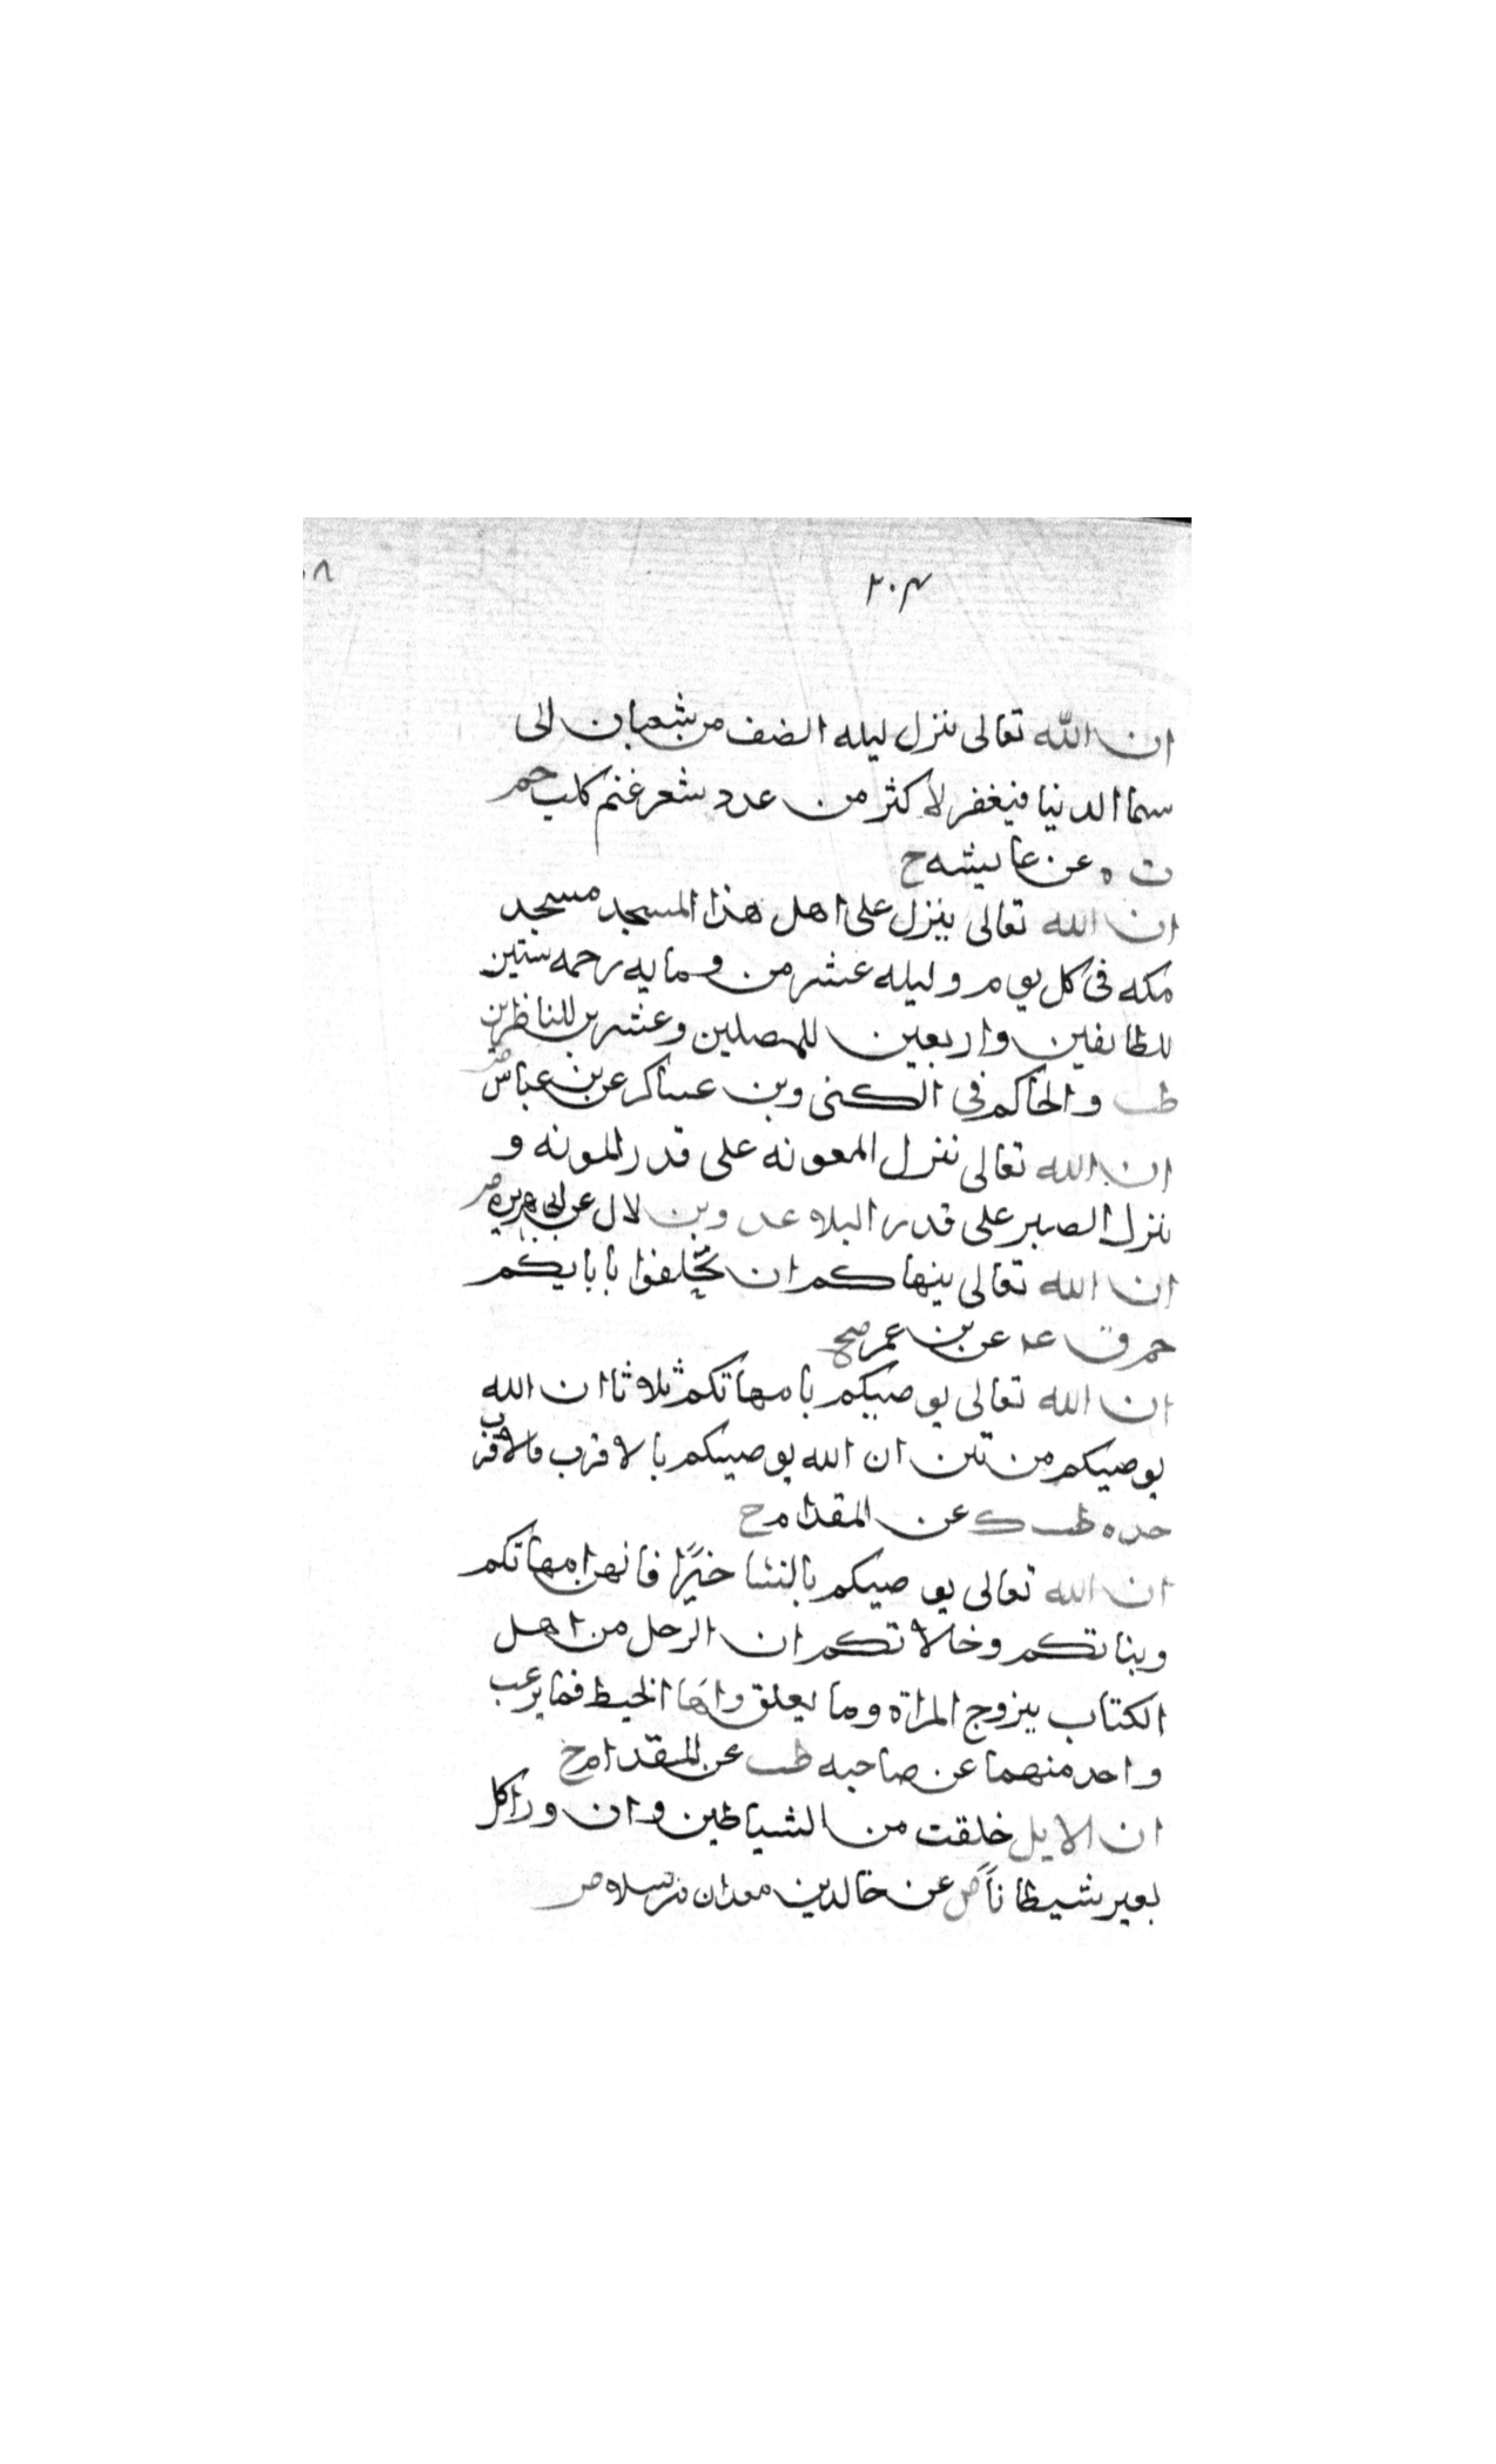 ٢٠٣
ان الله تعالى ننزل ليله النصف من شعبان الى
سما الدنيا فيغفر لاكثر من عدد شعر غنم كلب حم
ت ه عن عايشه ح
ان الله تعالى ينزل على اهل هذا المسجد مسجد
مكه فى كل يوم وليله عشرمن ومايه رحمه ستين
للطايفين واربعين للمصلين وعشرين للناظرين
طب والحاكم فى الكنى وبن عساكر عن بن عباس ض
ان الله تعالى ننزل المعونه على قدر المونه و
ننزل الصبر على قدر البلاء عد وبن لال عن ابى هريره ض
ان الله تعالى ينهاكم ان تحلفوا بابايكم
حم ق عد عن بن عمر صح
ان الله تعالى يوصيكم بامهاتكم ثلاثا ان الله
يوصيكم من تين ان الله يوصيكم بالاقرب فالاقرب
خد ه طب ك عن المقدام ح
ان الله تعالى يوصيكم بالنسا خيرًا فانهن امهاتكم
وبناتكم وخالاتكم ان الرحل من اهل
الكتاب يتزوج المراة وما يعلق واها الخيط فما يرغب
واحد منهما عن صاحبه طب عن المقدام ح
ان الابل خلقت من الشياطين وان ورا كل
بعير شيطاناً ص عن خالد بن معدان مرسلا ض